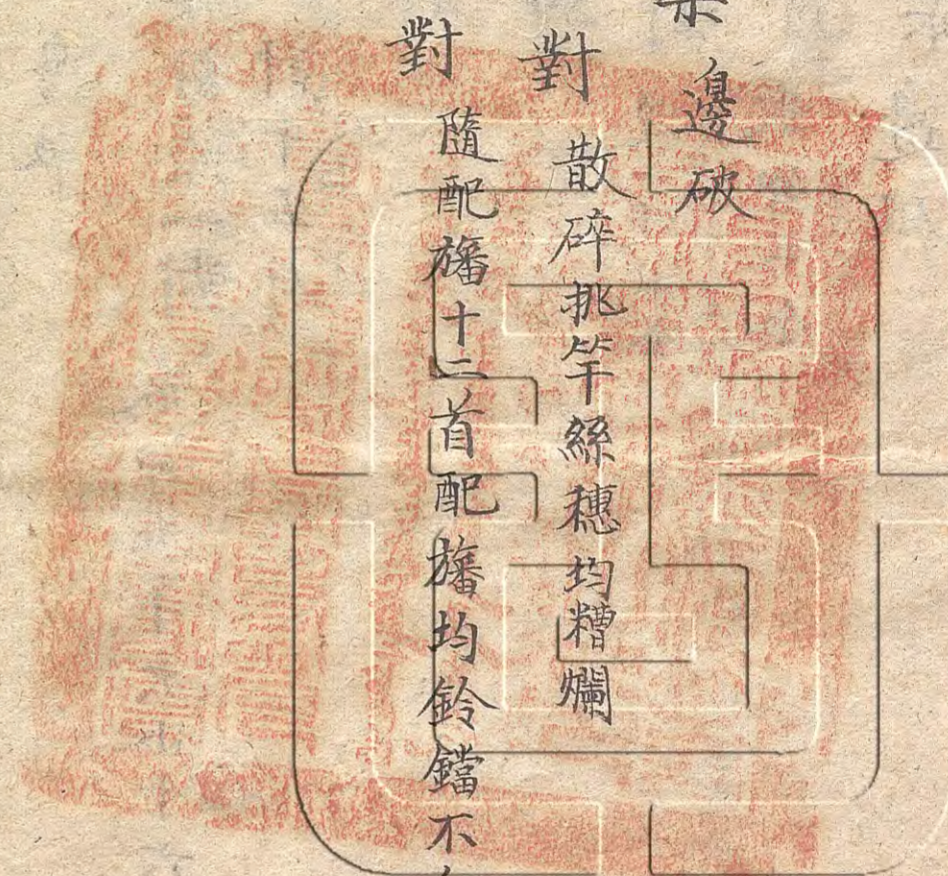 邊破
對 散碎挑竿絲穗均糟爛
對 隨配旛十二首配旛均鈴鐺不